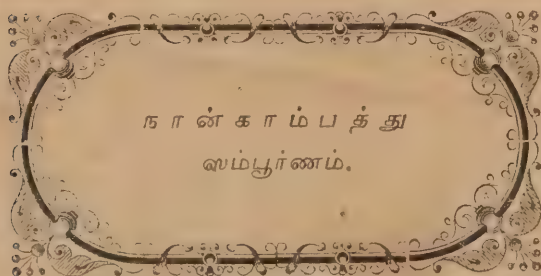 நான்காம்பத்து
ஸம்பூர்ணம்.